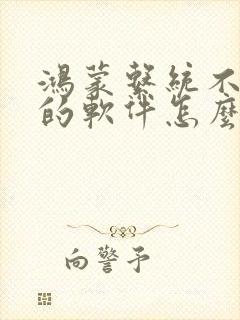 鴻蒙繫統不
的軟件怎麼
向警予